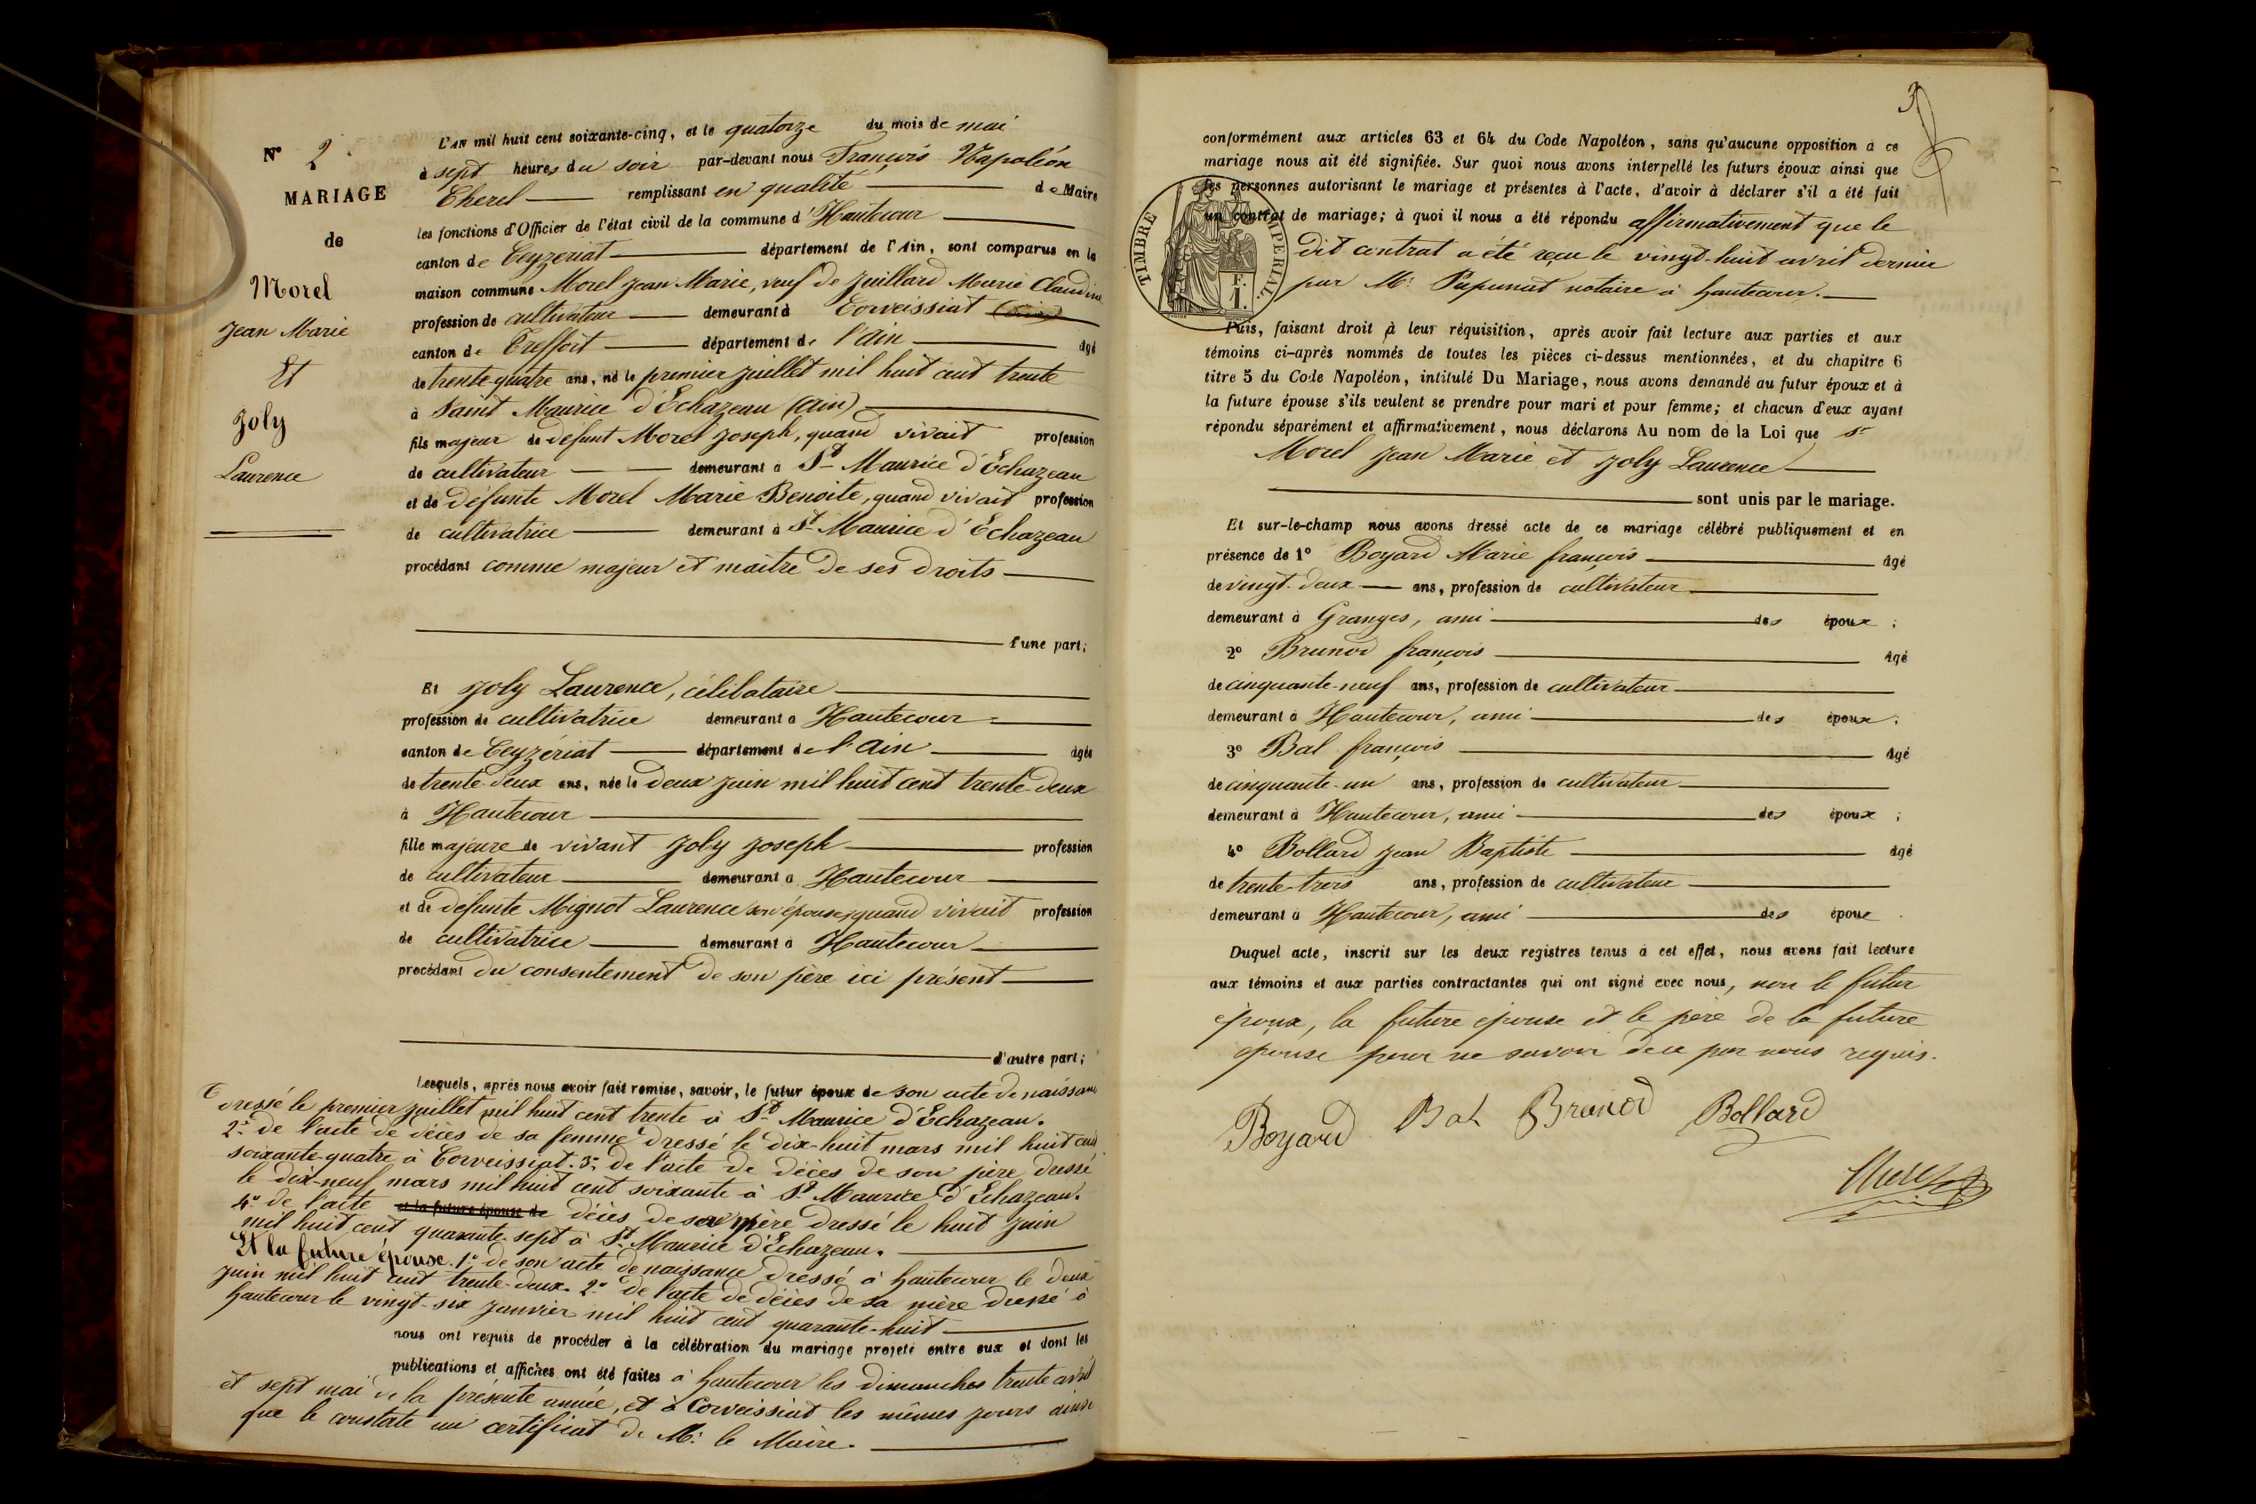 N° 2
MARIAGE
de
Morel
Jean Marie
Et
Joly
Laurence
L'an mil huit cent soixante-cinq, et le quatorze du mois de mai
à sept heures du soir par-devant nous François Napoléon
Cherel remplissant en qualité de Maire
les fonctions d'Officier de l'état civil de la commune d'Hautecour
canton de Ceyzériat département de l'Ain, sont comparus en la
maison commune Morel Jean Marie, veuf de Juillard Marie Claudine
profession de cultivateur demeurant à Corveissiat
canton de Treffort département de l'Ain âgé
de trente-quatre ans, né le premier juillet mil huit cent trente
à Saint Maurice d'Echazeau (Ain)
fils majeur de défunt Morel Joseph, quand vivait profession
de cultivateur demeurant à St Maurice d'Echazeau
et de défunte Morel Marie Benoite, quand vivait profession
de cultivatrice demeurant à St Maurice d'Echazeau
procédant comme majeur et maître de ses droits
d'une part;
Et Joly Laurence, célibataire
profession de cultivatrice demeurant à Hautecour
canton de Ceyzériat département de l'Ain âgée
de trente-deux ans, née le deux juin mil huit cent trente-deux
à Hautecour
fille majeure de vivant Joly Joseph profession
de cultivateur demeurant à Hautecour
et de défunte Mignot Laurence son épouse, quand vivait profession
de cultivatrice demeurant à Hautecour
procédant du consentement de son père ici présent
d'autre part;
Lesquels, après nous avoir fait remise, savoir, le futur époux de son acte de naissance
dressé le premier juillet mil huit cent trente à St Maurice d'Echazeau.
2° de l'acte de décès de sa femme dressé le dix-huit mars mil huit cent
soixante-quatre à Corveissiat. 3° de l'acte de décès de son père dressé
le dix-neuf mars mil huit cent soixante à St Maurice d'Echazeau.
4° de l'acte et la future épouse de décès de sa mère dressé le huit juin
mil huit cent quarante-sept à St Maurice d'Echazeau.
Et la future épouse. 1° de son acte de naissance dressé à hautecour le deux
juin mil huit cent trente-deux. 2° de l'acte de décès de sa mère dressé à
hautecour le vingt-six janvier mil huit cent quarante-huit
nous ont requis de procéder à la célébration du mariage projeté entre eux et dont les
publications et affiches ont été faites à hautecour les dimanches trente avril
et sept mai de la présente année, et à Corveissiat les mêmes jours ainsi
que le constate un certificat de Mr le Maire.
3
conformément aux articles 63 et 64 du Code Napoléon, sans qu'aucune opposition à ce
mariage nous ait été signifiée. Sur quoi nous avons interpellé les futurs époux ainsi que
les personnes autorisant le mariage et présentes à l'acte, d'avoir à déclarer s'il a été fait
un contrat de mariage; à quoi il nous a été répondu affirmativement que le
dit contrat a été reçu le vingt-huit avril dernier
par Mr Papunat notaire à hautecour.
TIMBRE IMPERIAL
F.
1.
Puis, faisant droit à leur réquisition, après avoir fait lecture aux parties et aux
témoins ci-après nommés de toutes les pièces ci-dessus mentionnées, et du chapitre 6
titre 5 du Code Napoléon, intitulé Du Mariage, nous avons demandé au futur époux et à
la future épouse s'ils veulent se prendre pour mari et pour femme; et chacun d'eux ayant
répondu séparément et affirmativement, nous déclarons Au nom de la Loi que sr
Morel Jean Marie et Joly Laurence
sont unis par le mariage.
Et sur-le-champ nous avons dressé acte de ce mariage célébré publiquement et en
présence de 1° Boyard Marie françois âgé
de vingt-deux ans, profession de cultivateur
demeurant à Granges, ami des époux;
2° Brunod françois âgé
de cinquante-neuf ans, profession de cultivateur
demeurant à Hautecour, ami des époux;
3° Bal françois âgé
de cinquante-un ans, profession de cultivateur
demeurant à Hautecour, ami des époux;
4° Bollard Jean Baptiste âgé
de trente-trois ans, profession de cultivateur
demeurant à Hautecour, ami des époux.
Duquel acte, inscrit sur les deux registres tenus à cet effet, nous avons fait lecture
aux témoins et aux parties contractantes qui ont signé avec nous, non le futur
époux, la future épouse et le père de la future
épouse pour ne savoir de ce par nous requis.
Boyard Bal Brunod Bollard